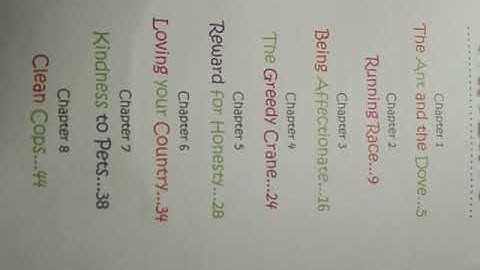 Chapter 1
The Ant and the Dove...5
Chapter 2
Running Race...9
Chapter 3
Being Affectionate...16
Chapter 4
The Greedy Crane...24
Chapter 5
Reward for Honesty...28
Chapter 6
Loving your Country...34
Chapter 7
Kindness to Pets...38
Chapter 8
Clean Cops...44